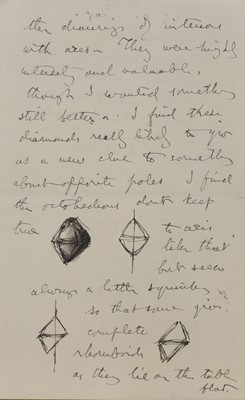 the drawings of interiors
with axes - They were highly
interesting and valuable,
though I wanted something
still better. I find these
diamonds really likely to give
us a new clue to something
about opposite poles I find
the octohedrons dont keep
true to axis
like that
but seem
always a little
so that some give
complete
rhomboids
as they lie on the table
flat.